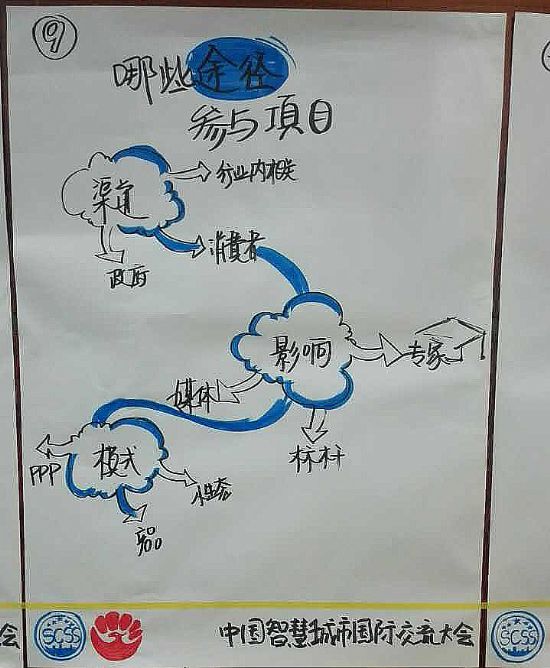 9
哪些途径
参与项目
渠道
行业内相关
消费者
政府
影响
专家
媒体
标杆
模式
PPP
会
SCSS
中国智慧城市国际交流大会
SCSS